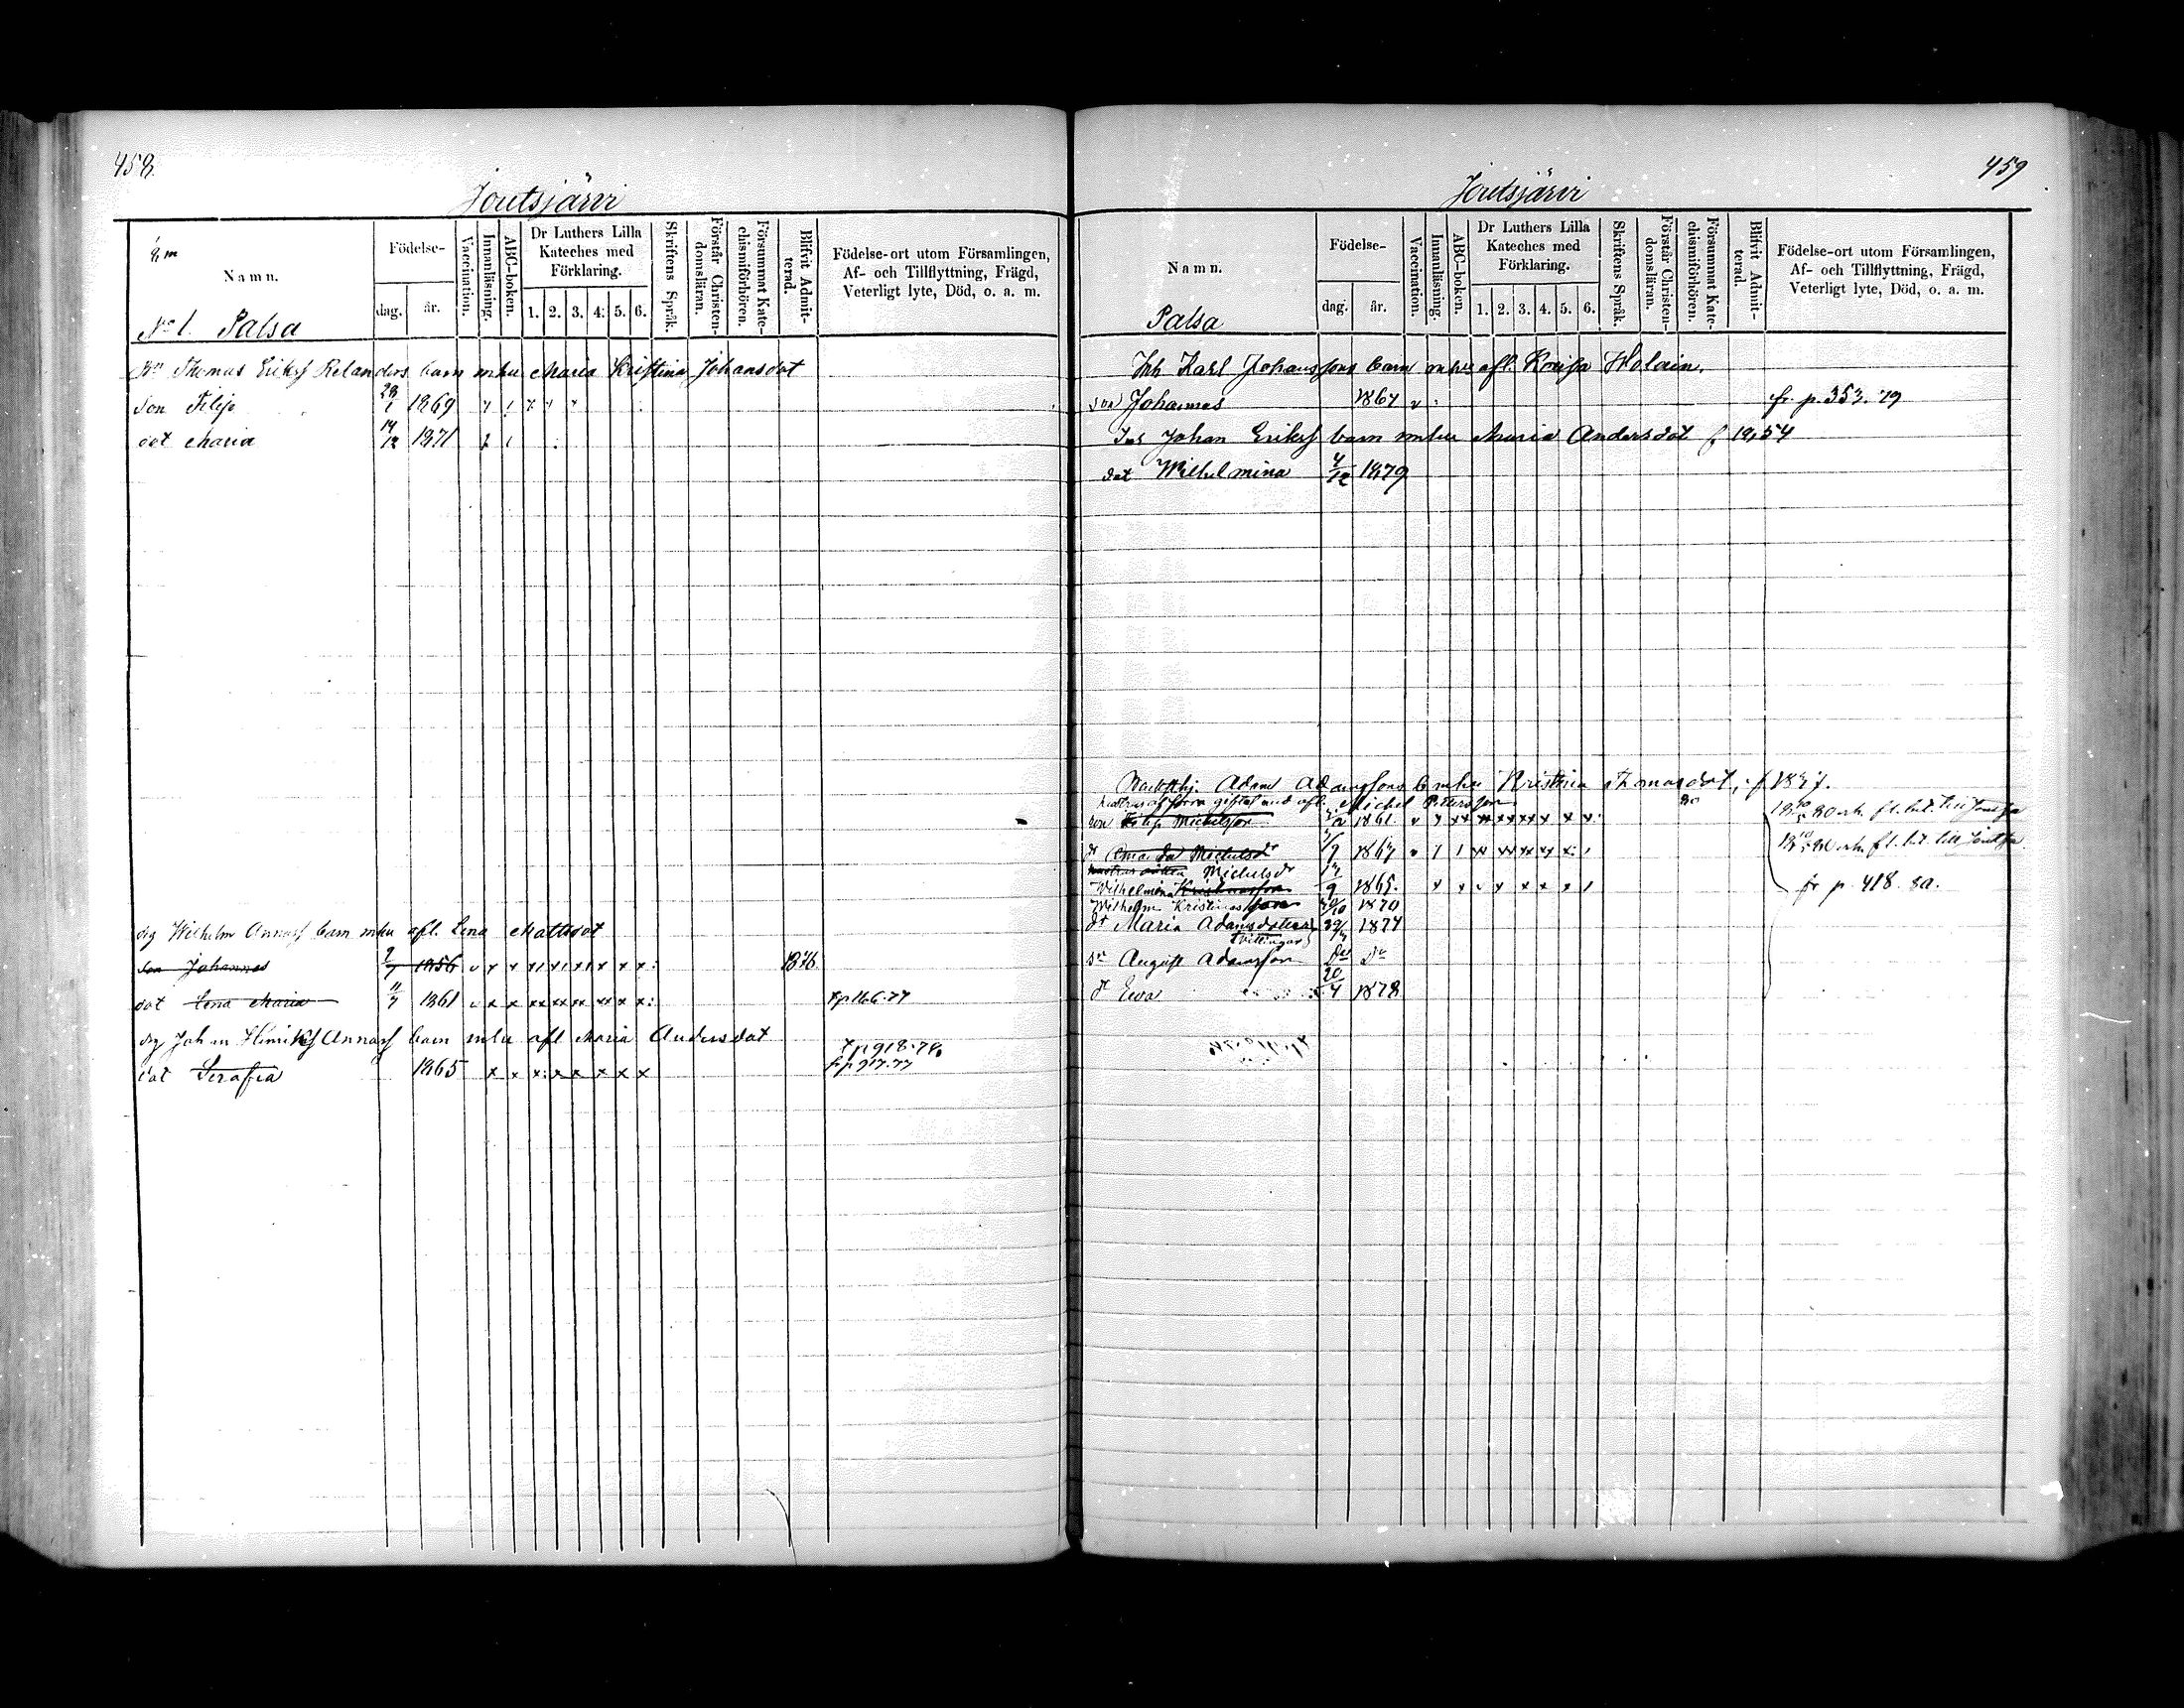 458
Joutsjärvi
Namn.
Födelse-
dag.
år.
Vaccination.
Innanläsning.
ABC-boken.
Dr Luthers Lilla
Kateches med
Förklaring.
1. 2. 3. 4. 5. 6.
Skriftens Språk.
Förstår Christen-
domsläran.
Försummat Kate-
chismiförhören.
Blifvit Admit-
terad.
Födelse-ort utom Församlingen,
Af- och Tillflyttning, Frägd,
Veterligt lyte, Död, o. a. m.
No 1. Palsa
Bn Thomas Erikss Relanders barn mhu Maria Kristina Johansdot
Son Filip 28/1 1869
dot Maria 14/12 1871
drg Wilhelm Annass barn mhu afl. Lena Mattsdot
Son Johannes 1856 1876
dot Lena Maria 11/7 1861 tp 166.77
drg Johan Henrikss Annass barn mhu afl Maria Andersdot
tp 918.78
dot Serafia 1865 fr p 917.77
459
Joutsjärvi
Namn.
Födelse-
dag.
år.
Vaccination.
Innanläsning.
ABC-boken.
Dr Luthers Lilla
Kateches med
Förklaring.
1. 2. 3. 4. 5. 6.
Skriftens Språk.
Förstår Christen-
domsläran.
Försummat Kate-
chismiförhören.
Blifvit Admit-
terad.
Födelse-ort utom Församlingen,
Af- och Tillflyttning, Frägd,
Veterligt lyte, Död, o. a. m.
Palsa
Inh Karl Johanssons barn mhu afl. Lovisa Holain.
son Johannes 1867 fr. p. 353. 79
Inh Johan Erikss barn mhu Maria Andersdot f 1854
dot Wilhelmina 4/12 1879
Adam Adamssons b mhu Kristina Thomasdot, f 1837.
förra giftet med afl. Michel Petersson
son Filip Michelsson 1861
dr Amanda Michelsdr 1867
Michelsdr
Wilhelmina 1865. fr p. 418. 80.
Wilhelm Kristinasson 1870
dr Maria Adamsdotter 1877
Tvillingar
sn August Adamsson Do Do
dr Eva 20/4 1878